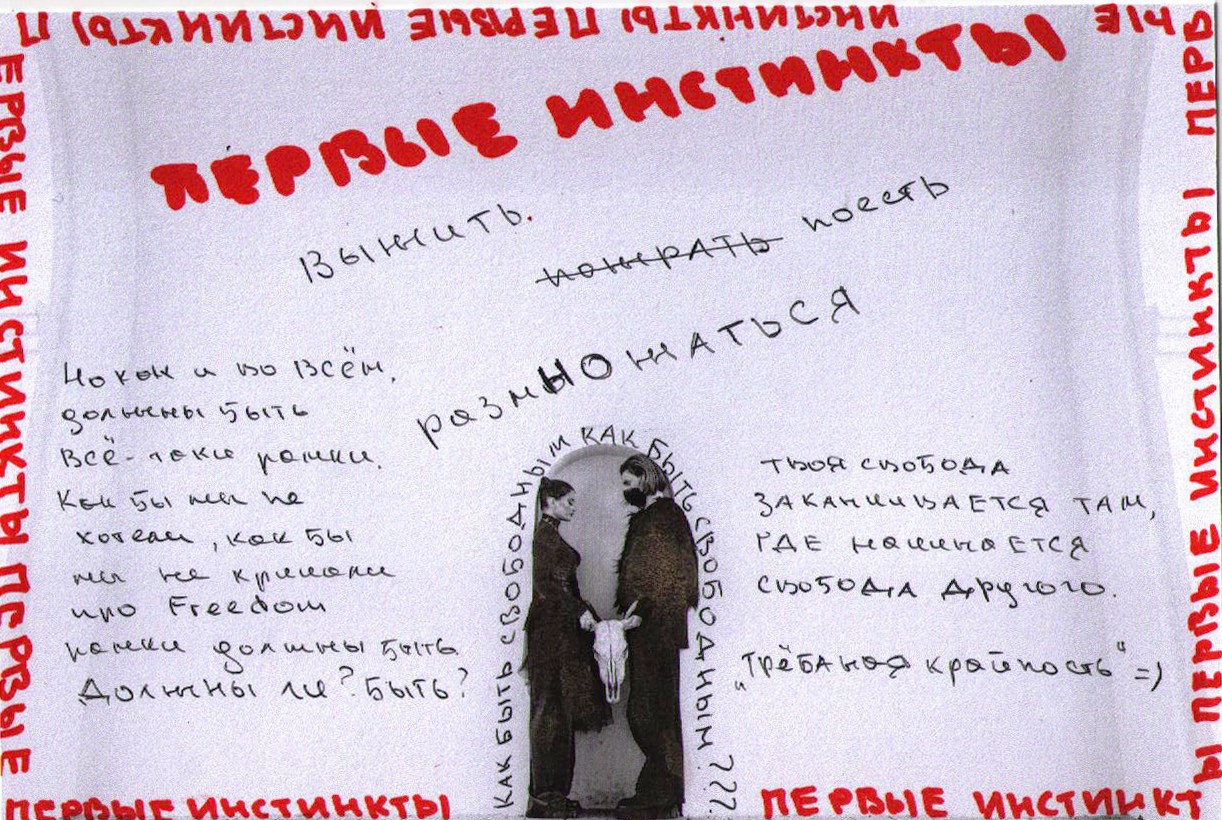 Ы) ПЕРВЫЕ ИНСТИНКТЫ П
ЫЕ
ИНСТИНКТЫ ПЕРВЫЕ
ПЕРВЫЕ ИНСТИНКТЫ
ЕРВЫЕ ИНСТИНКТЫ ПЕРВЫЕ
Ы ПЕРВЫЕ ИНСТИНКТЫ ПЕРВ
выжить.
пожрать поесть
размНОжаться
Но как и во всём,
должны быть
всё-таки рамки.
Как бы мы не
хотели, как бы
мы не кричали
про Freedom
рамки должны быть
Должны ли? Быть?
КАК БЫТЬ СВОБОДНЫМ КАК БЫТЬ СВОБОДНЫМ???
твоя свобода
ЗАКАНЧИВАЕТСЯ ТАМ,
ГДЕ начинАЕТСЯ
свобоДА другого.
"трёбАная крайность" =)
ПЕРВЫЕ ИНСТИНКТЫ
ПЕРВЫЕ ИНСТИНКТ